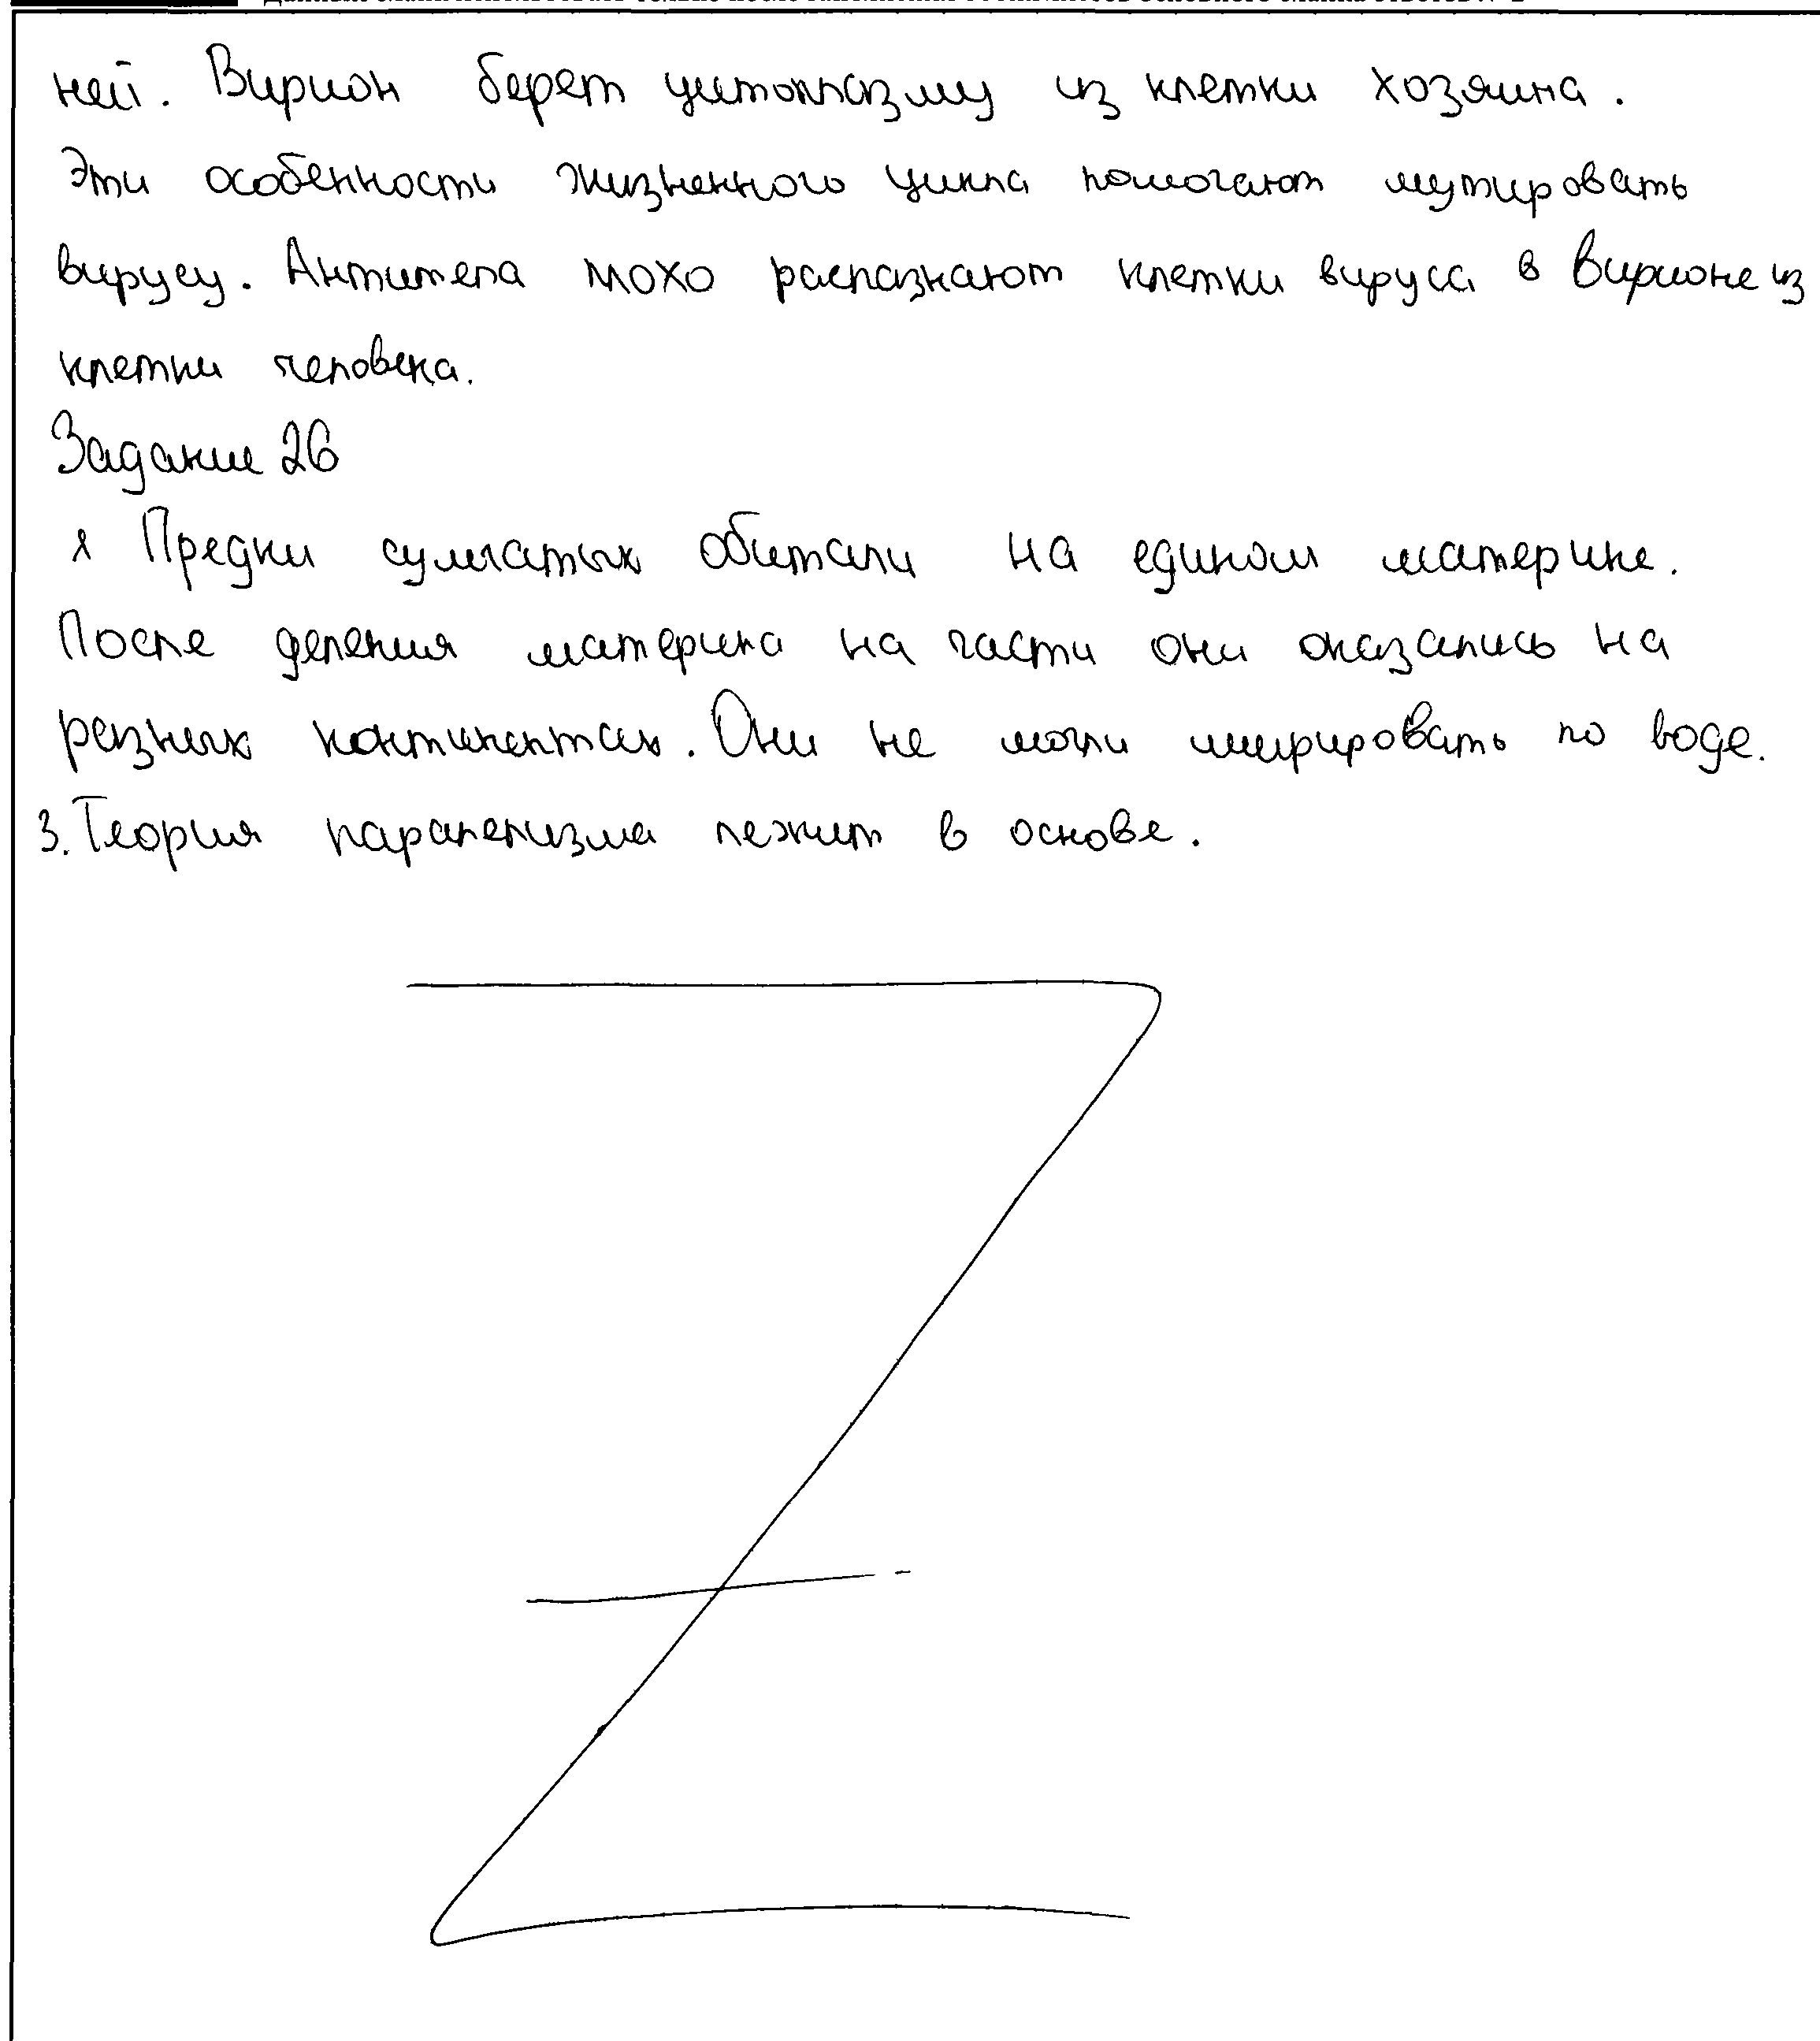 ней. Вирион берет цитоплазму из клетки хозяина.
Эти особенности жизненного цикла помогают мутировать
вирусу. Антитела плохо распазнают клетки вируса в Вирионе из
клетки человека.
Задание 26
1 Предки сумчатых обитали на едином материке.
После деления материка на части они оказались на
разных континентах. Они не могли мигрировать по воде.
3. Теория паралелизма лежит в основе.